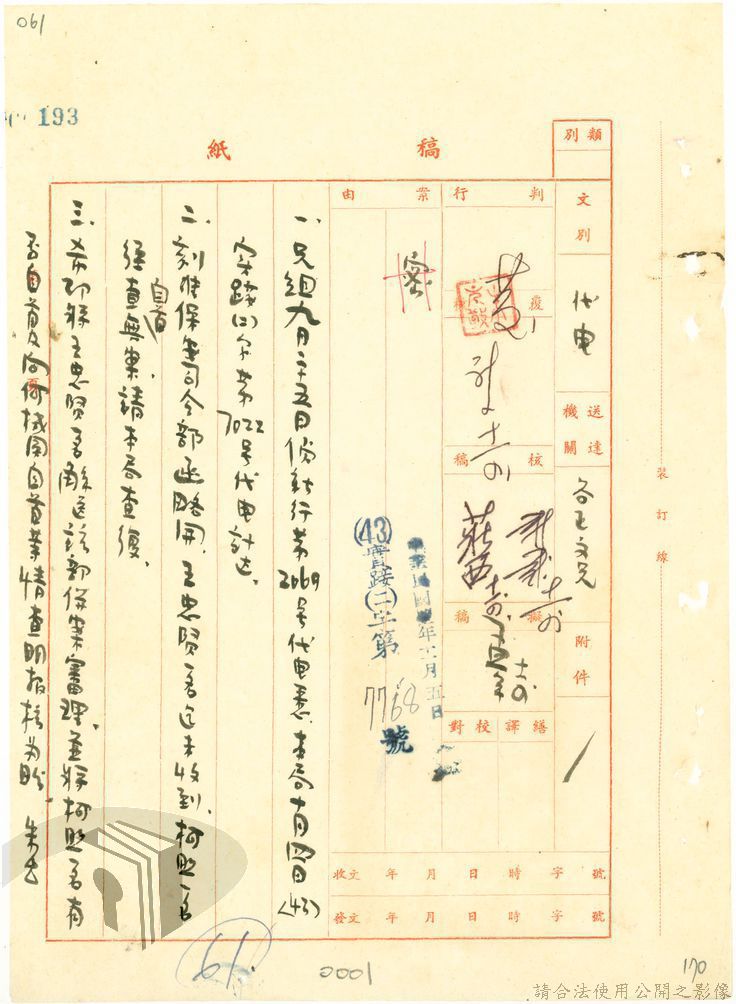 061
193
稿紙
類別
文別
代电
送達機關
谷正文兄
附件
判行
覆核
核稿
擬稿
繕譯校對
案由
密
年十一月五日
(43)實踐(二)字第7768號
收文 年 月 日 時 字 號
發文 年 月 日 時 字 號
一、兄組九月二十五日份執行第2669号代电悉,本局十月四日(43)
实踐(二)字第7022号代电計达。
二、刻准保安司令部函略開,王忠賢一名迄未收到,柯照一名
自首
經查無案,請本局查復。
三、希即將王忠賢一名解送該部併案審理,並將柯照一名有
否自首及向何机関自首等情查明报核为盼 朱
裝訂線
61
0001
170
請合法使用公開之影像